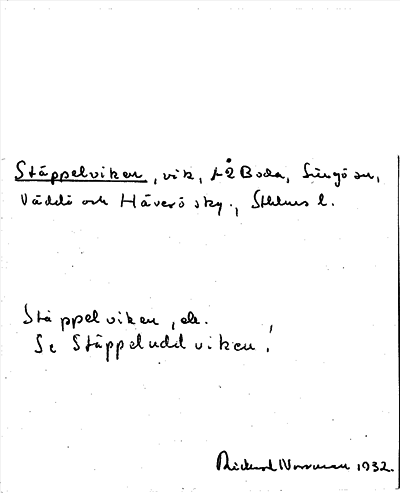 Stäppelviken, vik, t. Boda, Singö sn,
Väddö och Häverö sky., Sthlms l.
Stäppelviken, ek.
Se Stäppeluddviken!
Rickard Norrman 1932.